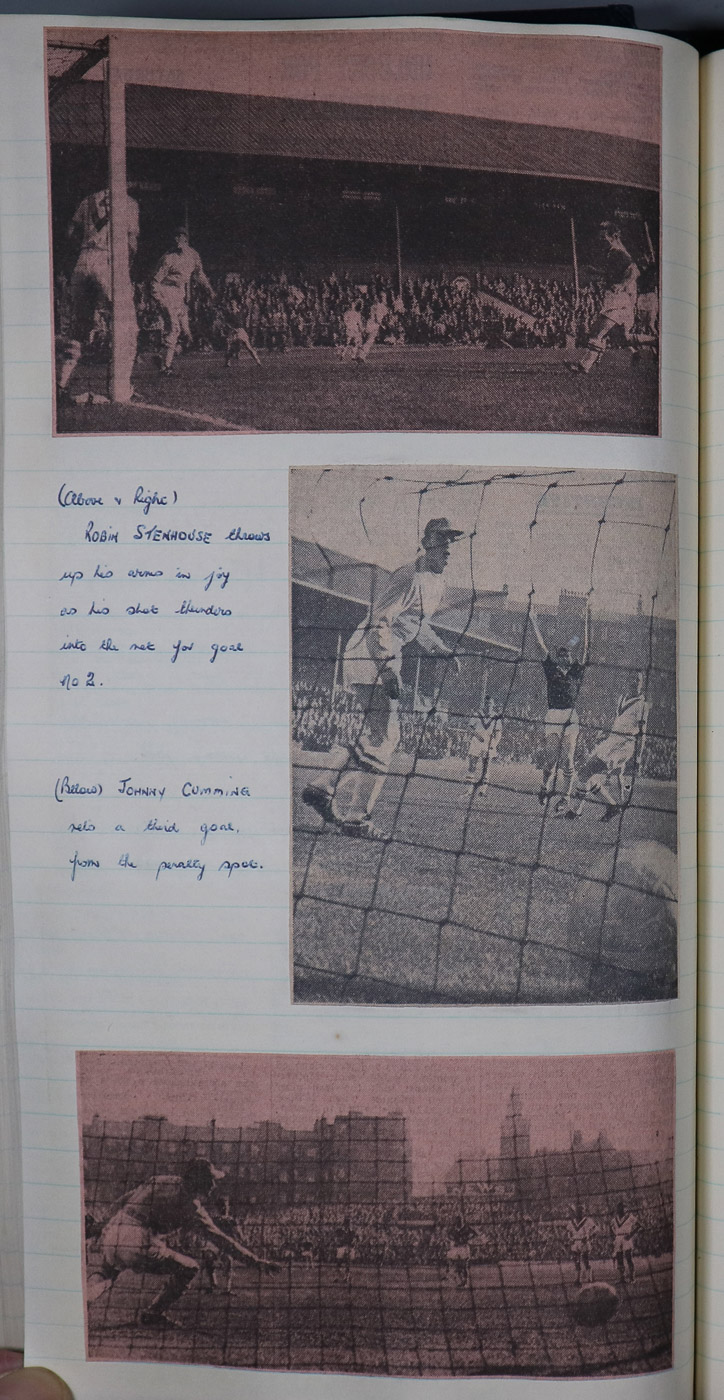 (Above & Right)
ROBIN STENHOUSE throws
up his arms in joy
as his shot thunders
into the net for goal
no 2.
(Below) JOHNNY CUMMING
nets a third goal,
from the penalty spot.